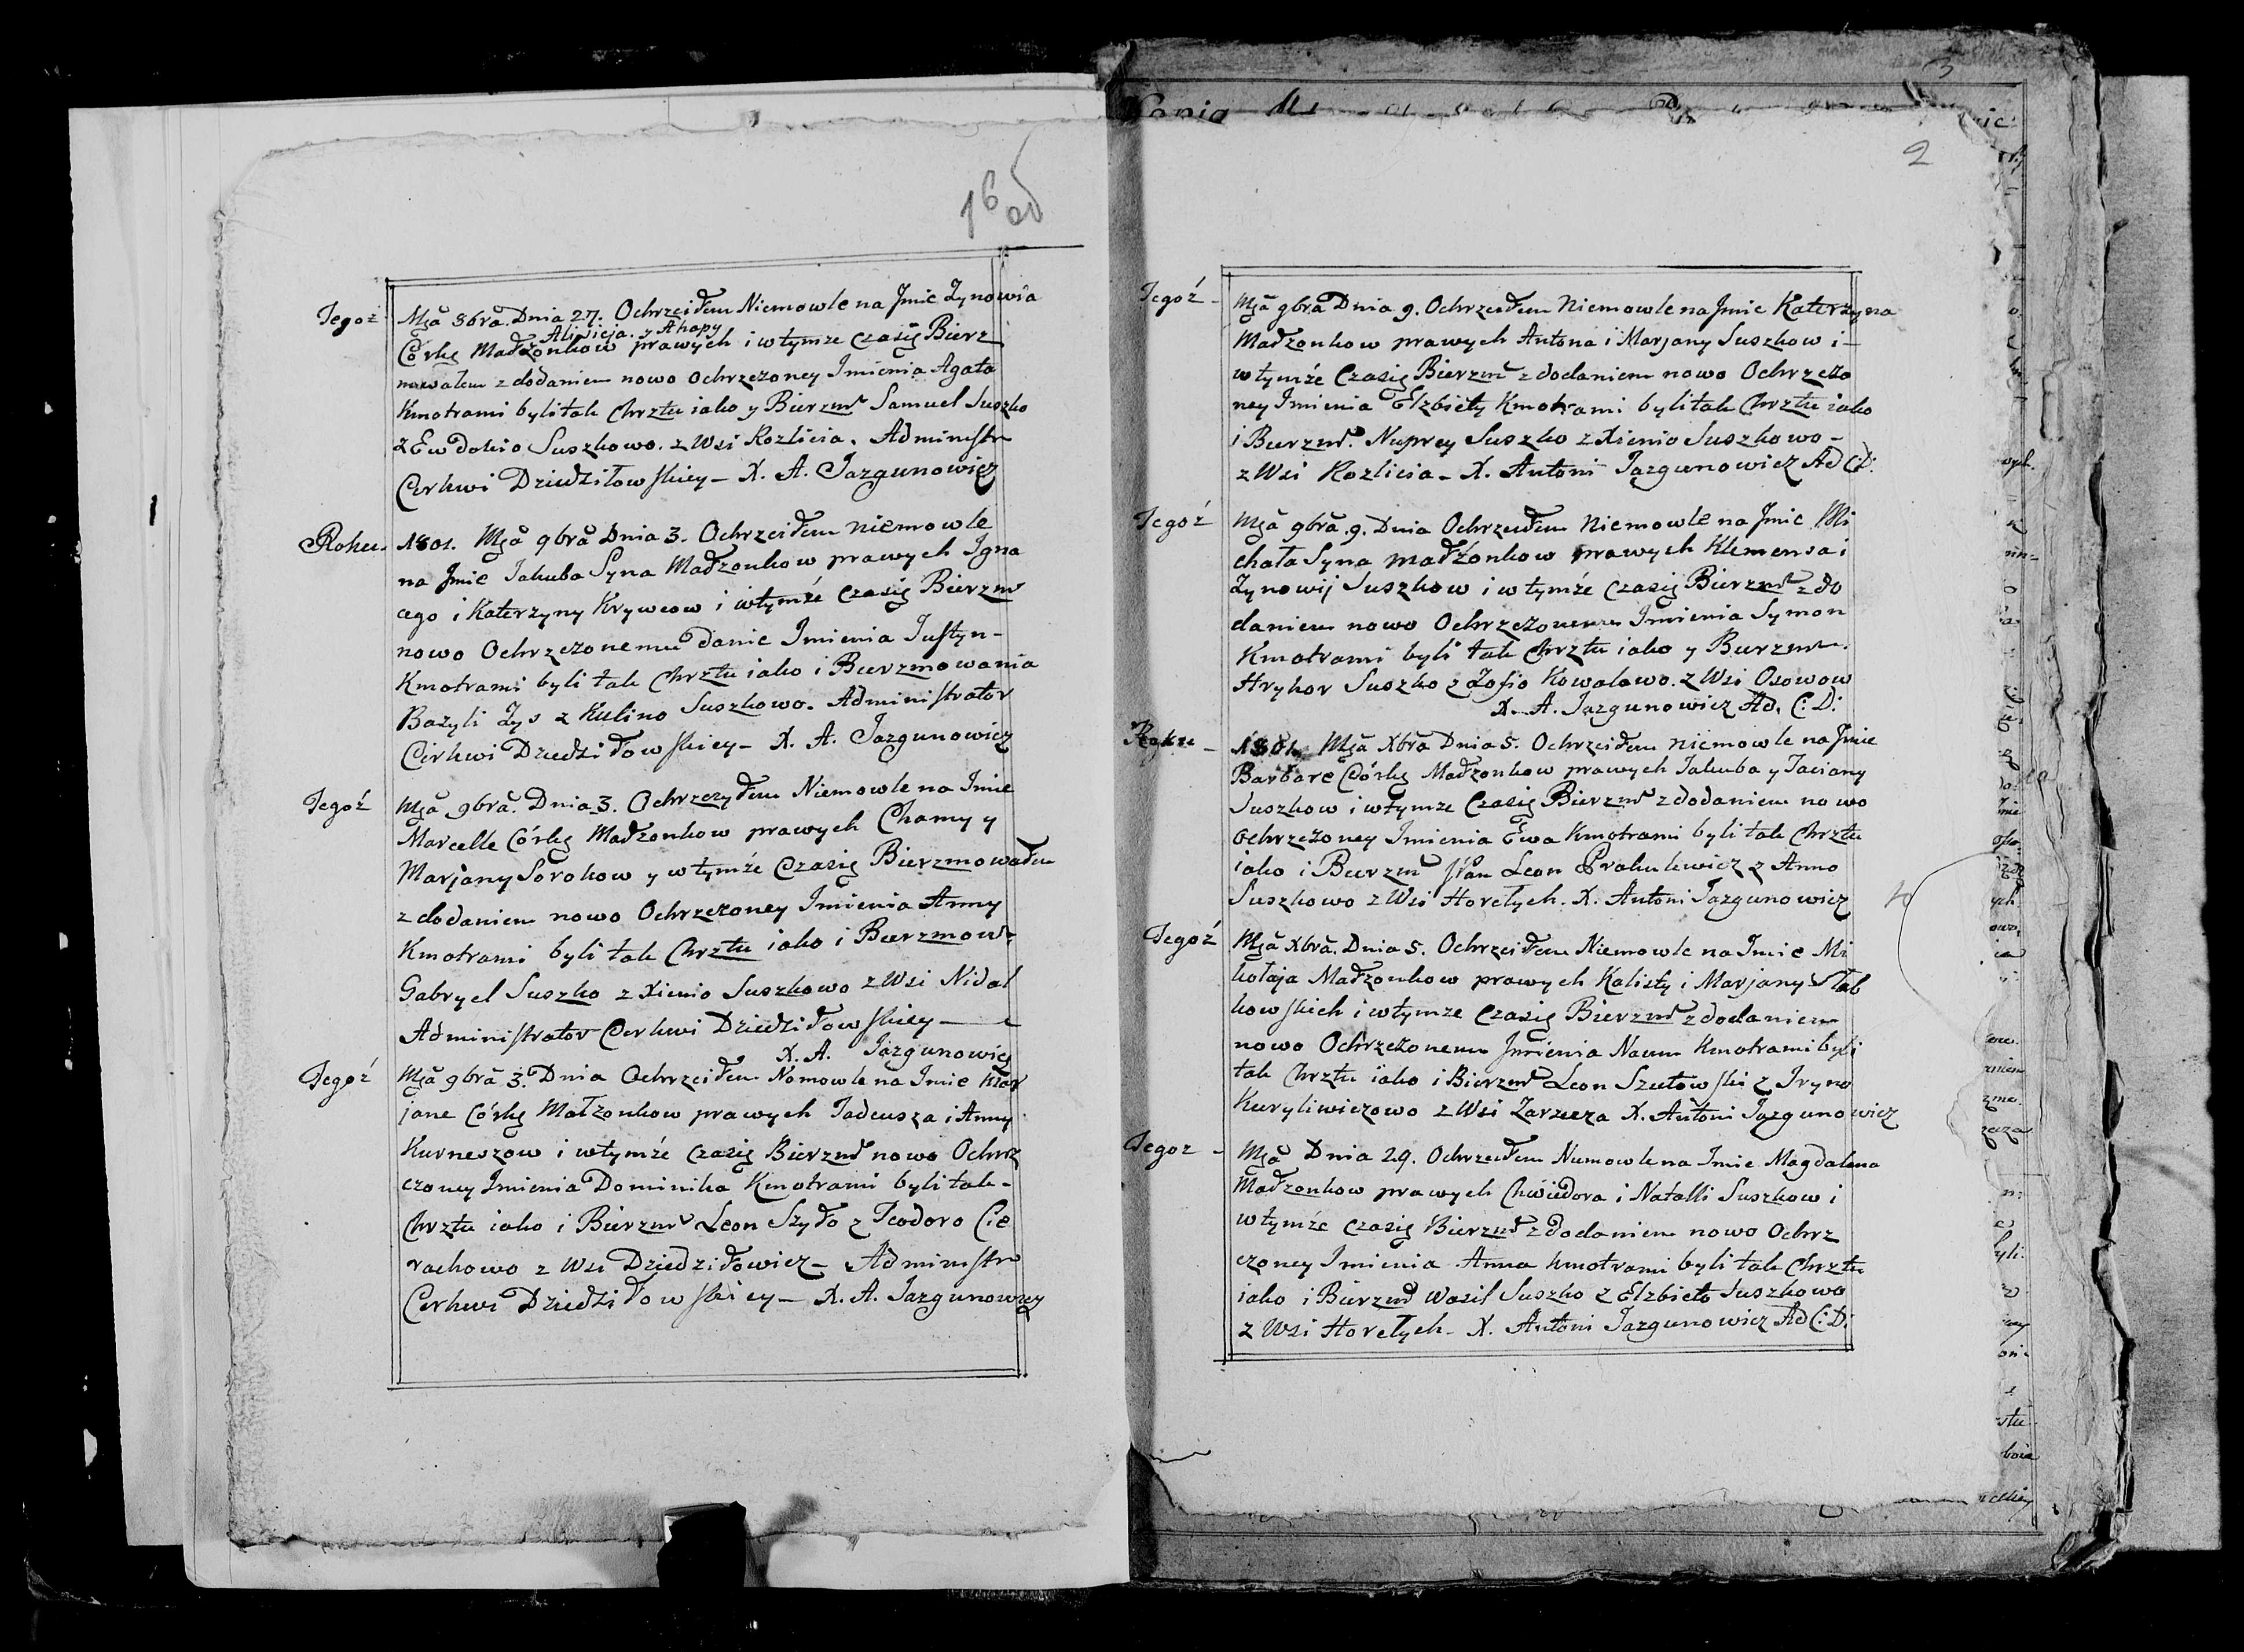 16 об
Tegoż
Mca 8bra. Dnia 27. Ochrzciłem Niemowle na Jmie Zynowia
Alipieja. y Ahapy
Córkę Małżonkow prawych i w tymze Czasie Bierz
mowałem z dodaniem nowo Ochrzczoney Imienia Agata
Kmotrami byli tak Chrztu iako y Bierzm Samuel Suszko
z Ewdokio Suszkowo. z Wsi Rozlicia. Administr
Cerkwi Dziedziłowskiey – X. A. Jazgunowicz
Roku
1801. Mca 9bra Dnia 3. Ochrzciłem Niemowle
na Jmie Jakuba Syna Małzonkow prawych Igna
cego i Katerzyny Krywcow i wtymże Czasie Bierzm
nowo Ochrzczonemu danie Imienia Justyn –
Kmotrami byli tak Chrztu iako i Bierzmowania
Bazyli Zys z Kulino Suszkowo. Administrator
Cerkwi Dziedziłowskiey – X. A. Jazgunowicz
Tegoż
Mca 9bra. Dnia 3. Ochrzczyłem Niemowle na Imie
Marcelle Córkę Małzonkow prawych Chamy y
Marjany Sorokow y wtymże Czasie Bierzmowałem
z dodaniem nowo Ochrzczoney Imienia Anny
Kmotrami byli tak Chrztu iako i Bierzmow:
Gabryel Suszko z Xienio Suszkowo z Wsi Nidal
Administrator Cerkwi Dziedziłowskiey –
X. A. Jazgunowicz
Tegoż
Mca 9bra 3. Dnia Ochrzciłem Nomowle na Imie Mar
jane Córkę Małzonkow prawych Tadeusza i Anny
Kurneszow i wtymże Czasie Bierzm nowo Ochrz
czoney Imienia Dominika Kmotrami byli tak –
Chrztu iako i Bierzm Leon Szyło z Teodoro Cie
rachowo z Wsi Dziedziłowicz – Administr
Cerkwi Dziedziłowskiey – X. A. Jazgunowicz
3
2
Tegoż –
Mca 9bra Dnia 9. Ochrzciłem Niemowle na Jmie Katerzyna
Małzonkow prawych Antona i Marjany Suszkow i –
wtymże Czasie Bierzm z dodaniem nowo Ochrzczo
ney Imienia Elzbiety Kmotrami byli tak Chrztu iako
i Bierzm. Nuprey Suszko z Xienio Suszkowo –
z Wsi Rozlicia – X. Antoni Jazgunowicz Ad C: D:
Tegoż
Mca 9bra. 9. Dnia Ochrzciłem Niemowle na Jmie Mi
chała Syna małżonkow prawych Klemensa i
Zynowij Suszkow i w tymże Czasie Bierzm z do
daniem nowo Ochrzczonemu Imienia Symon
Kmotrami byli tak Chrztu iako y Bierzm.
Hryhor Suszko z Zofio Kowalowo. z Wsi Osowow
X. A. Jazgunowicz Ad. C: D:
Roku –
1801. Mca Xbra Dnia 5. Ochrzciłem niemowle na Jmie
Barbare Córkę Małzonkow prawych Jakuba y Taciany
Suszkow i wtymze Czasie Bierzm z dodaniem nowo
Ochrzczoney Imienia Ewa Kmotrami byli tak Chrztu
iako i Bierzm Pan Leon Prokulewicz z Anno
Suszkowo z Wsi Horełych. X. Antoni Jazgunowicz
Tegoż
Mca Xbra. Dnia 5. Ochrzciłem Niemowle na Imie Mi
kołaja Małzonkow prawych Kalisty i Marjany Słab
kowskich i wtymze Czasie Bierzm z dodaniem
nowo Ochrzczonemu Jmienia Naum Kmotrami byli
tak Chrztu iako i Bierzm Leon Szutowski z Iryno
Kuryliwiczowo z Wsi Zarzecza X. Antoni Jazgunowicz
Tegoz –
Mca Dnia 29. Ochrzciłem Niemowle na Imie Magdalena
Małzonkow prawych Chwiedora i Natalli Suszkow i
wtymże Czasie Bierzm z dodaniem nowo Ochrz
czoney Imienia Anna Kmotrami byli tak Chrztu
iako i Bierzm Wasil Suszko z Elzbieto Suszkowo
z Wsi Horełych – X. Antoni Jazgunowicz Ad C: D: